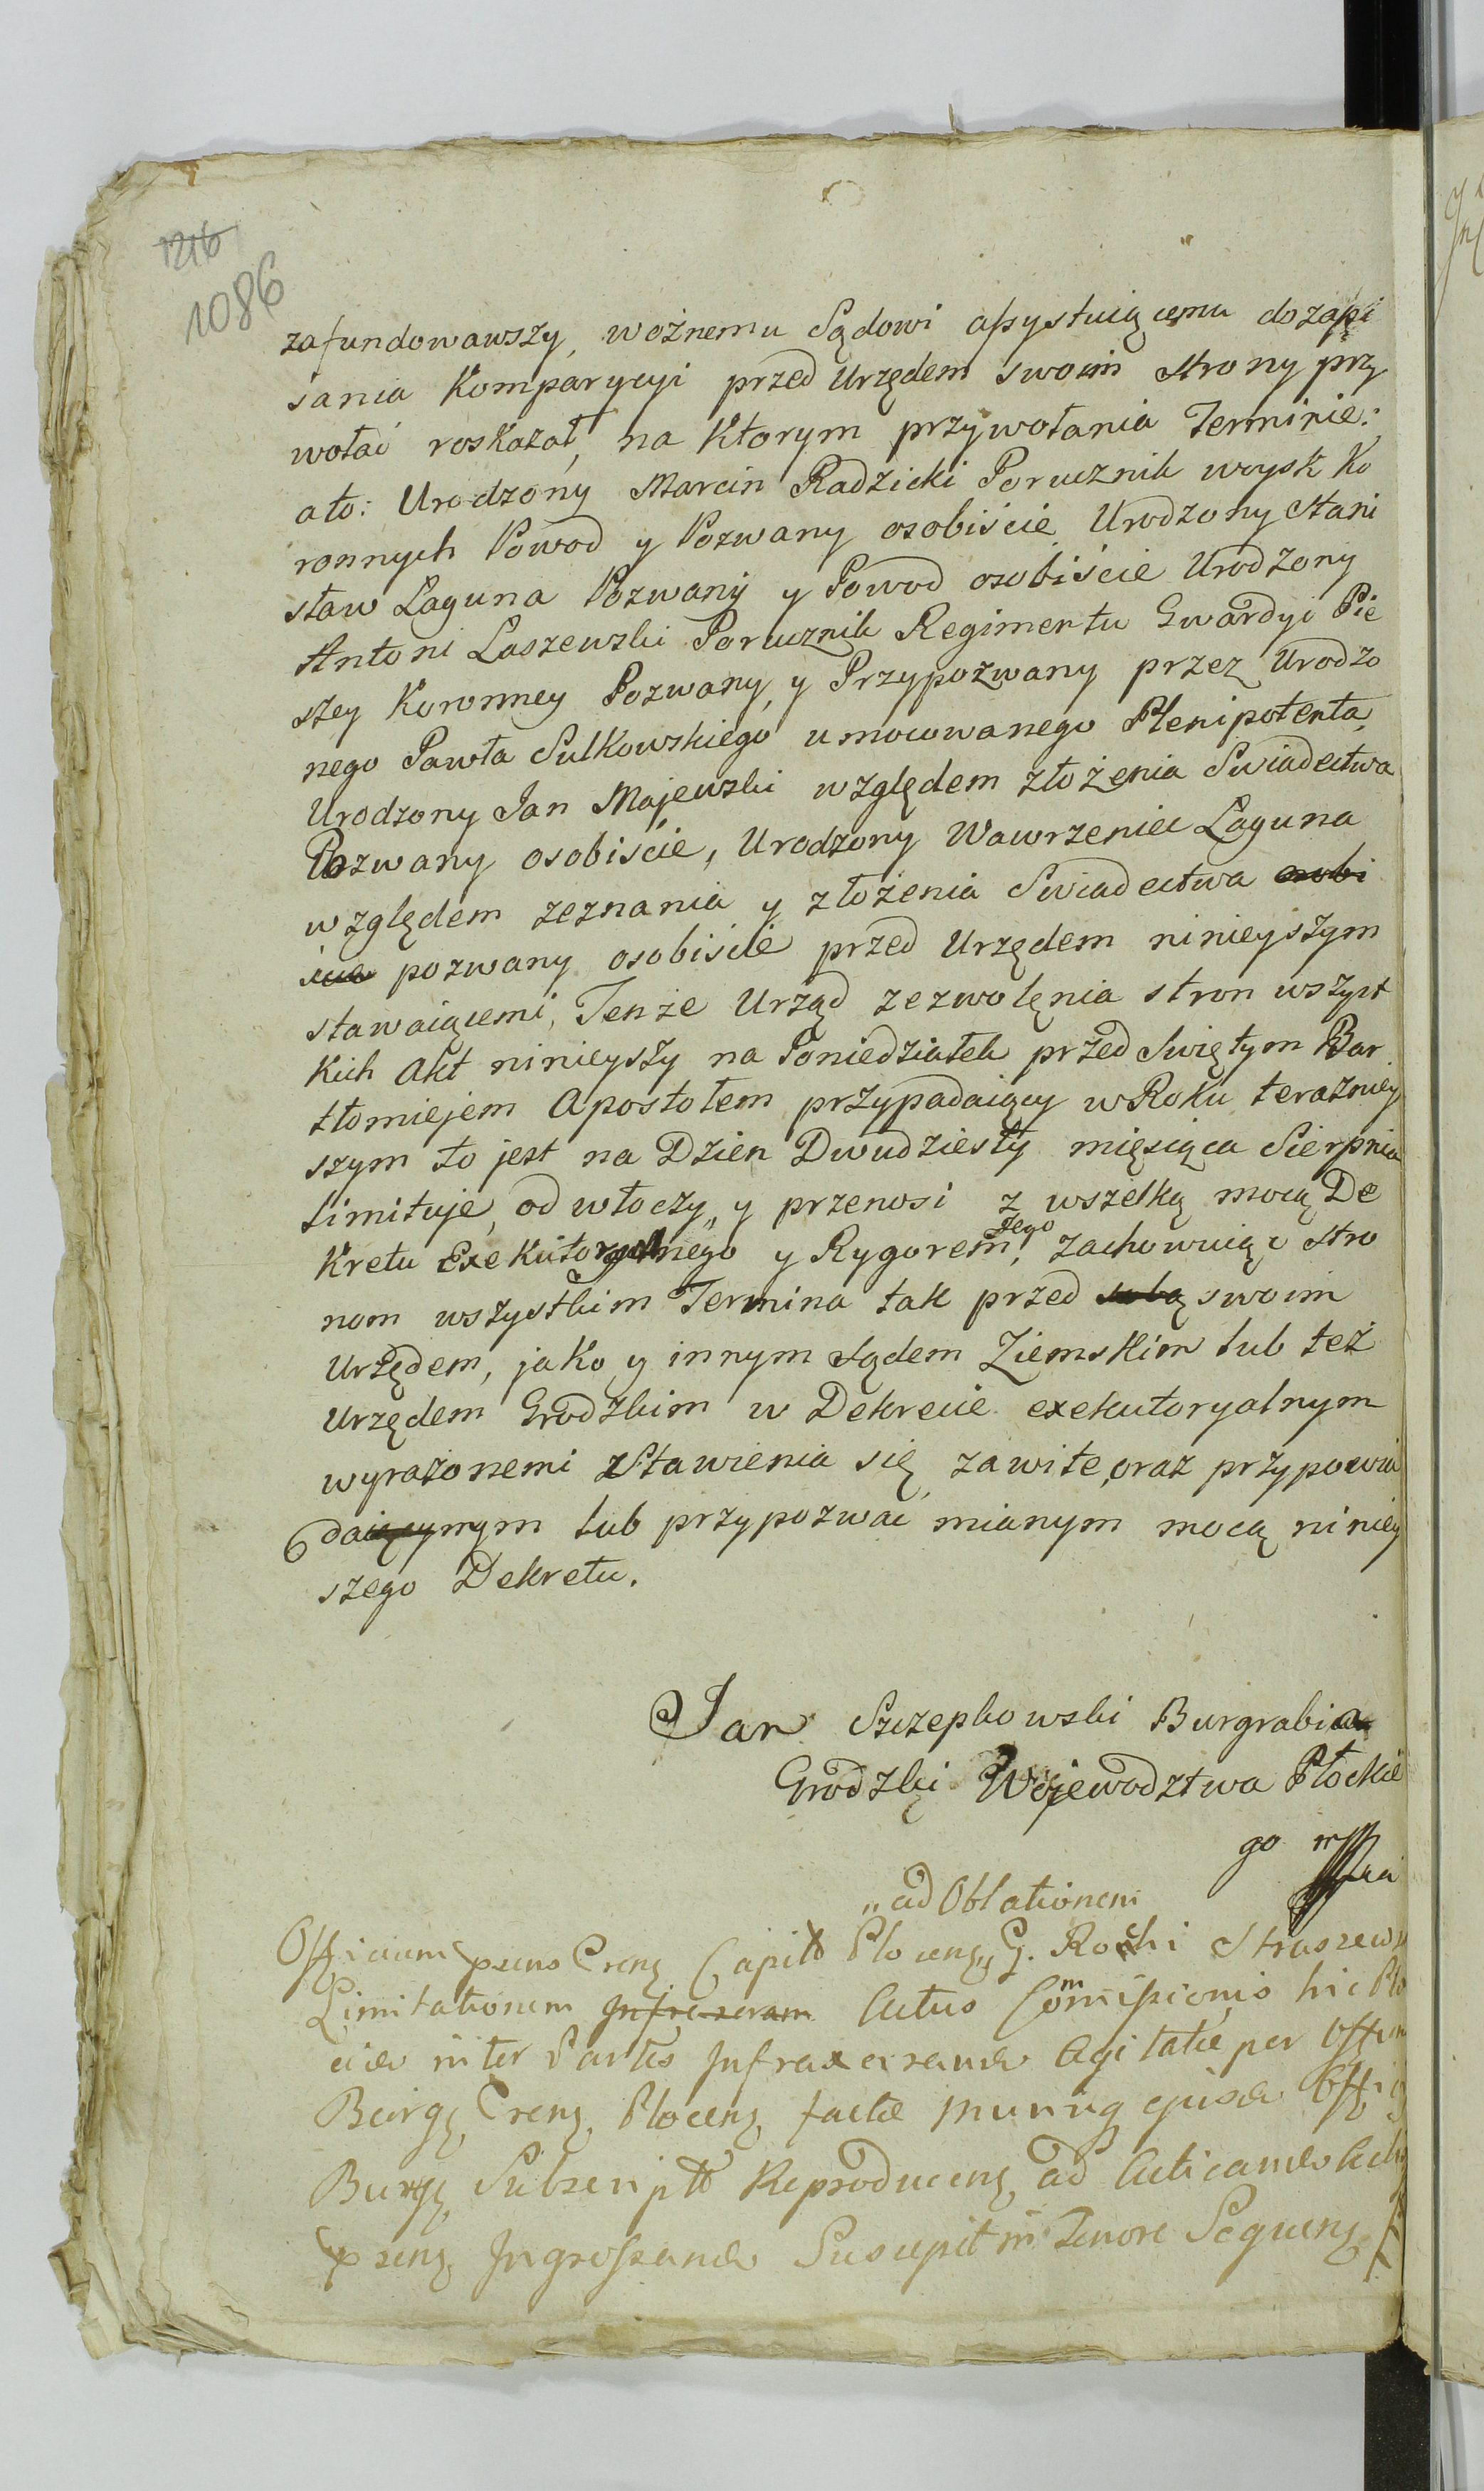 1216
1086
zafundowawszy, woźnemu Sądowi assystuiącemu do zapi
sania Komparycyi przed Urzędem swoim strony przy
wołać roskazał, na Ktorym przywołania Terminie:
ato: Urodzony Marcin Radzicki Porucznik woysk Ko
ronnych Powod y Pozwany osobiście, Urodzony Stani
sław Laguna Pozwany y Powod osobiście Urodzony
Antoni Laszewski Porucznik Regimentu Gwardyi Pie
szey Koronney Pozwany, y Przypozwany przez Urodzo
nego Pawła Sulkowskiego umocowanego Plenipotenta,
Urodzony Jan Majewski względem złożenia Swiadectwa
Pozwany osobiście, Urodzony Wawrzeniec Laguna
względem zeznania y złożenia Swiadectwa osobi
ście pozwany osobiście przed Urzędem ninieyszym
stawaiącemi, Tenże Urząd zezwolenia stron wszyst
kich Akt ninieyszy na Poniedziałek przed Swiętym Bar
tłomiejem Apostołem przypadaiący w Roku teraźniey
szym to jest na Dzien Dwudziesty miesiąca Sierpnia
limituje, odwłoczy, y przenosi z wszelką mocą De
kretu Exekutoryalnego y Rygorem tego, zachowuiąc stro
nom wszystkim Termina tak przed sobą swoim
Urzędem, jako y innym sądem Ziemskim lub też
Urzędem Grodzkim w Dekrecie exekutoryalnym
wyrażonemi stawienia się zawite, oraz przypowia
daiącymym lub przypozwać mianym mocą niniey
szego Dekretu.
Jan Szczepkowski Burgrabia
Grodzki Wojewodztwa Płockie
go
„ad Oblationem
Officium prens Crenẜ Capitt Plocenẜ, G. Rochi Straszew
Limitationem Infraseram Actus Commissionis hic Plo
ciæ inter Partes Infraexarand Agitatæ per Offium
Burgẜ Crenẜ Plocenẜ factæ ejusd Offi
Burgẜ Subscriptt Reproducenẜ ad Acticand
prenẜ Ingrossand Suscepit in Tenore Sequenẜ